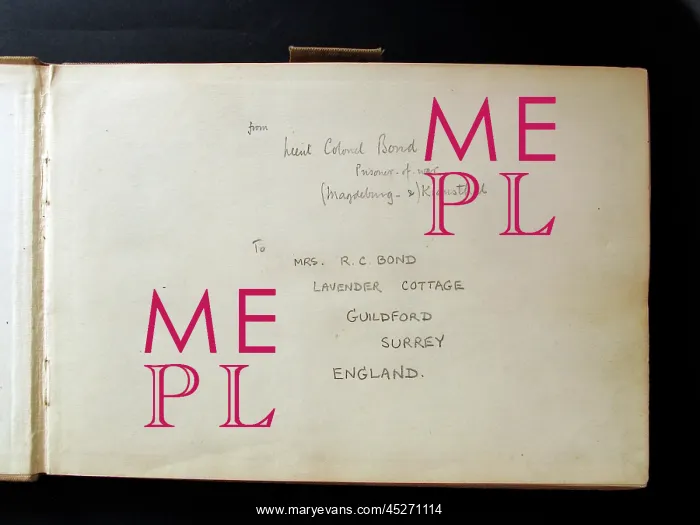 from
Lieut Colonel Bond
Prisoner-of-war
(Magdeburg - &)
To
MRS. R.C. BOND
LAVENDER COTTAGE
GUILDFORD
SURREY
ENGLAND.
ME
PL
ME
PL
www.maryevans.com/45271114